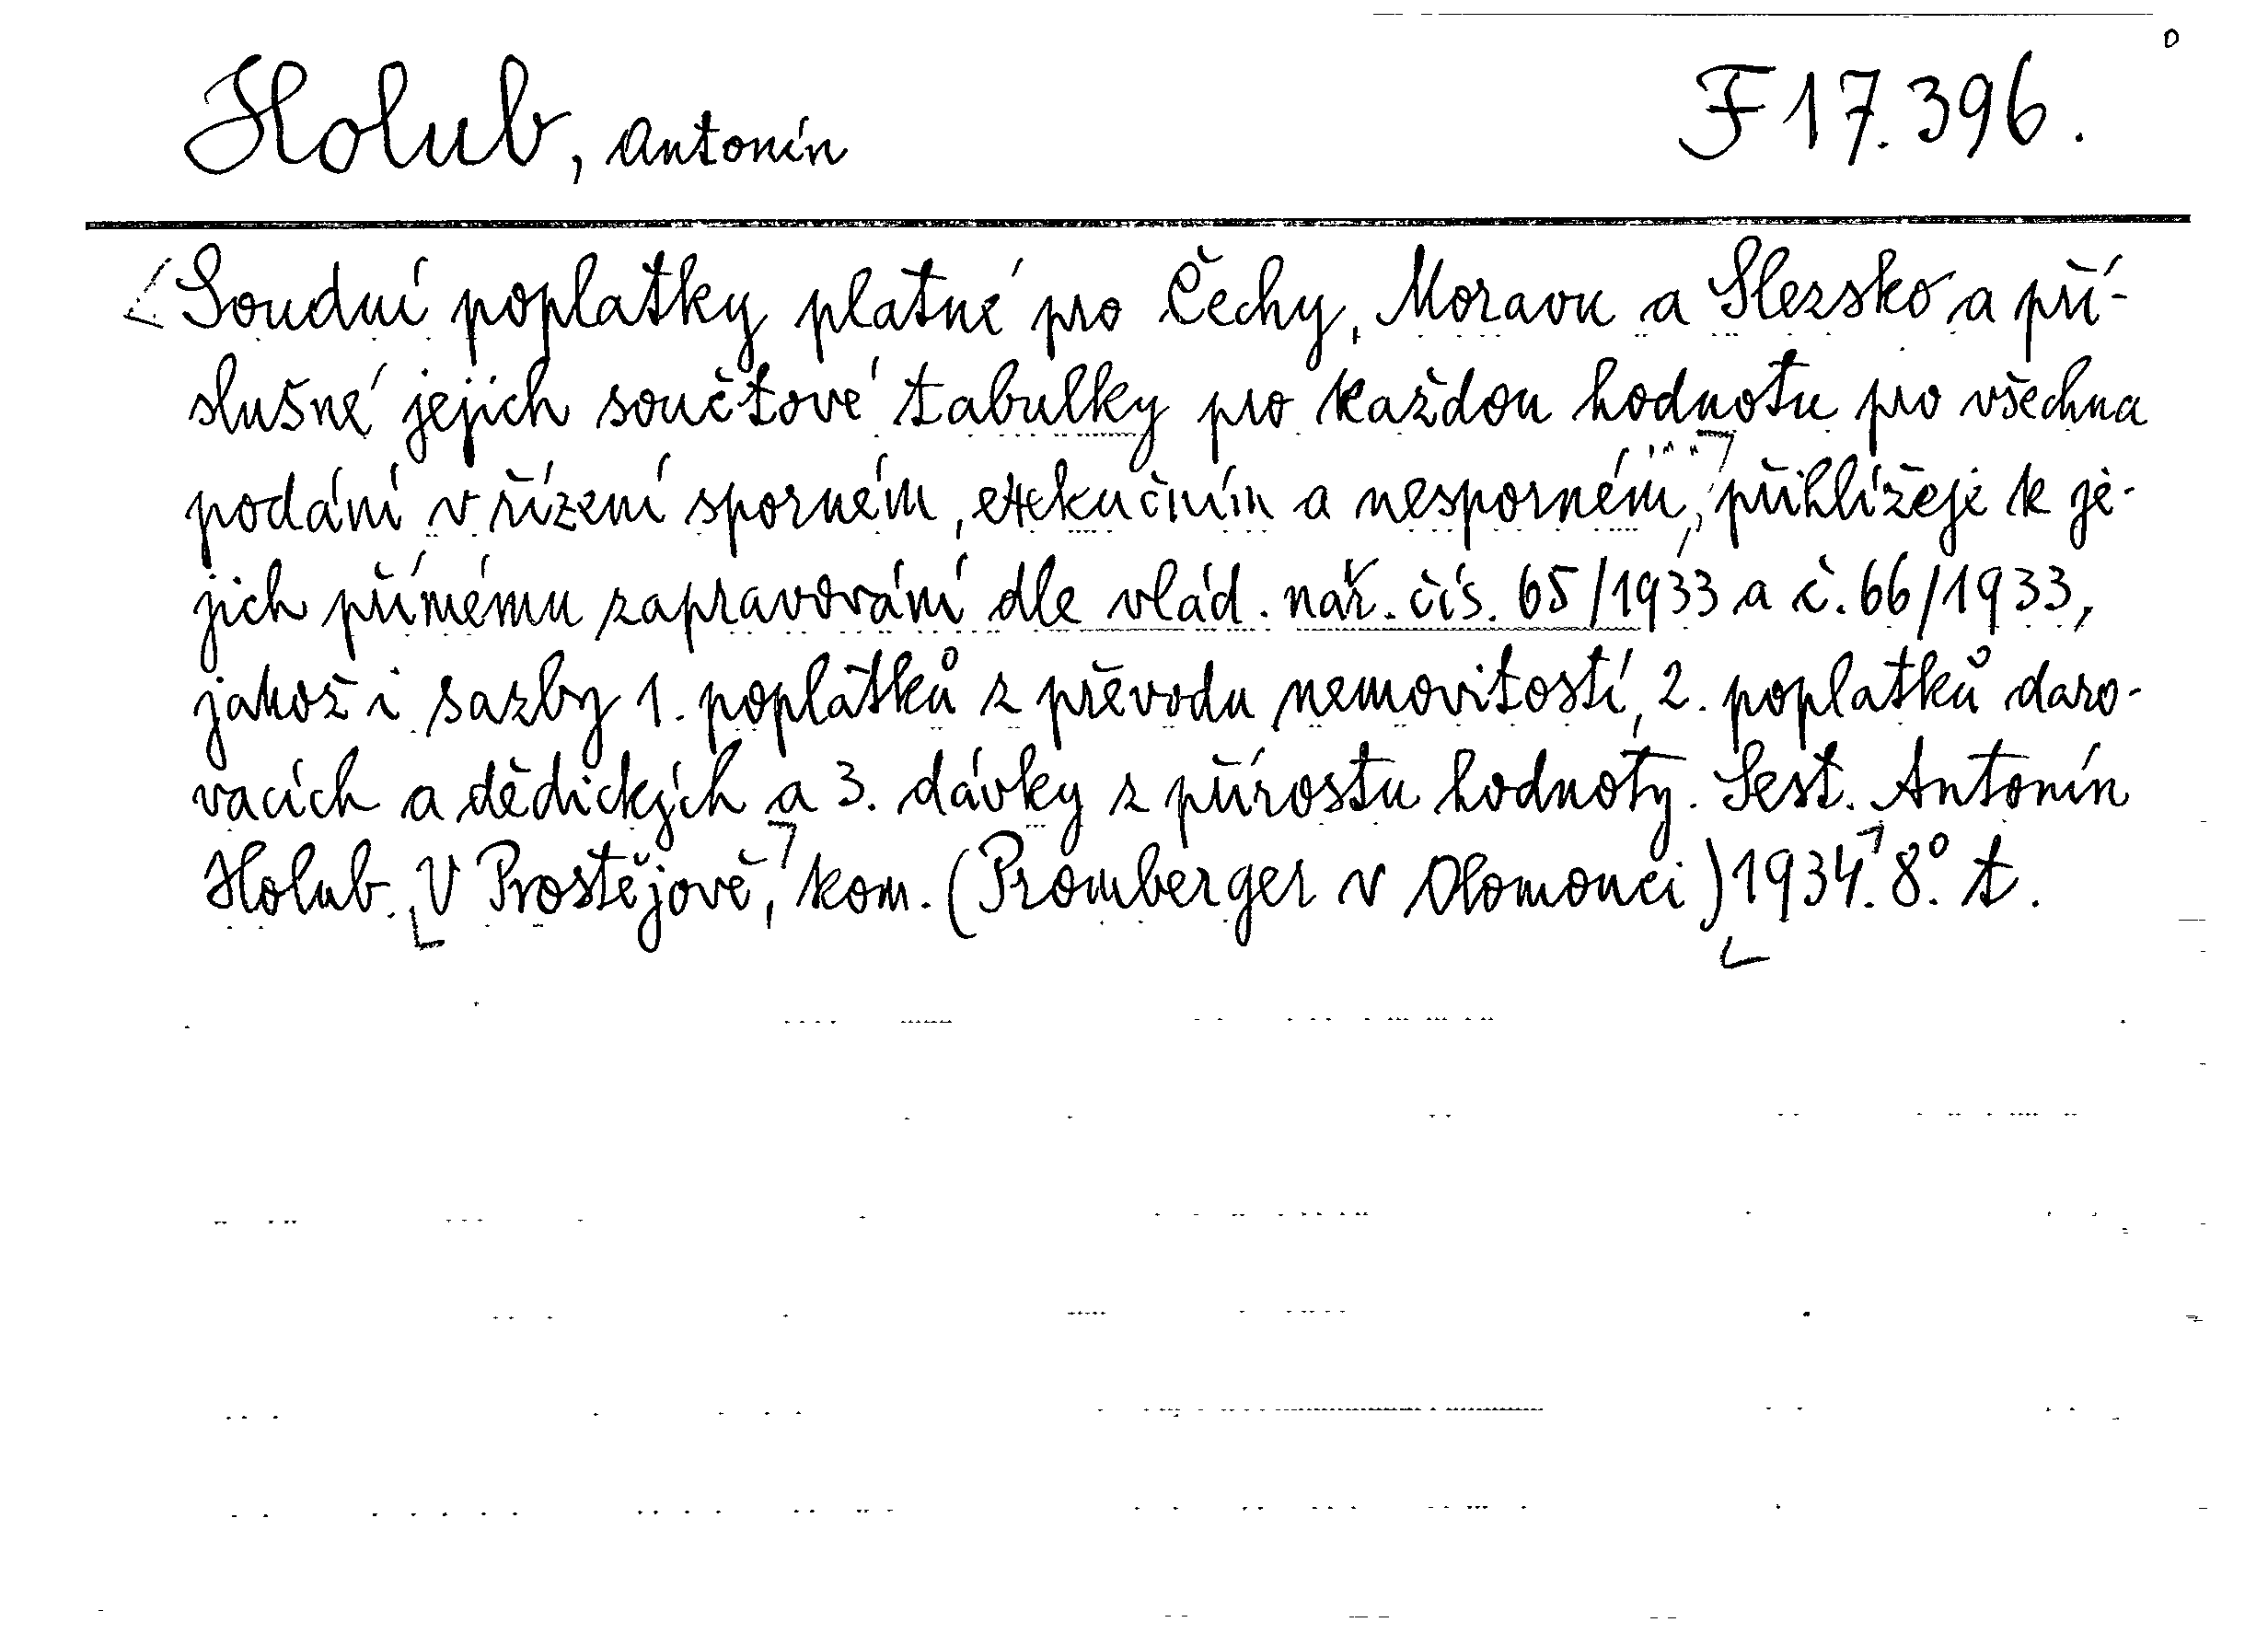 Holub, Antonín
F 17.396.
Soudní poplatky platné pro Čechy, Moravu a Slezsko a pří-
slušné jejich součtové tabulky pro každou hodnotu pro všechna
podání v řízení sporném, exekučním a nesporném, přihlížeje k je-
jich přímému zapravování dle vlád. nař. čís. 65/1933 a č. 66/1933,
jakož i sazby 1. poplatků z převodu nemovitostí, 2. poplatků daro-
vacích a dědických a 3. dávky z přírostu hodnoty. Sest. Antonín
Holub. V Prostějově, kom. (Promberger v Olomouci) 1934. 8°. t.